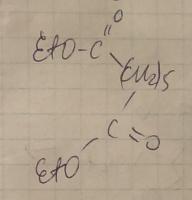 O
EtO-C
(CH2)5
C=O
EtO